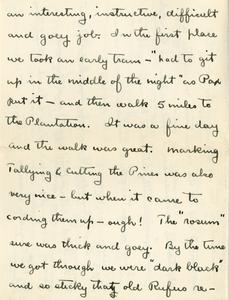 an interesting, instructive, difficult
and goey job. In the first place
we took an early train - "had to git
up in the middle of the night" as Pax
put it - and then walk 5 miles to
the Plantation. It was a fine day
and the walk was great. marking
Tallying & cutting the Pines was also
very nice - but when it came to
cording them up - ough! The "rosum"
sure was thick and goey. By the time
we got through we were "dark black"
and so sticky that old Rufus re-